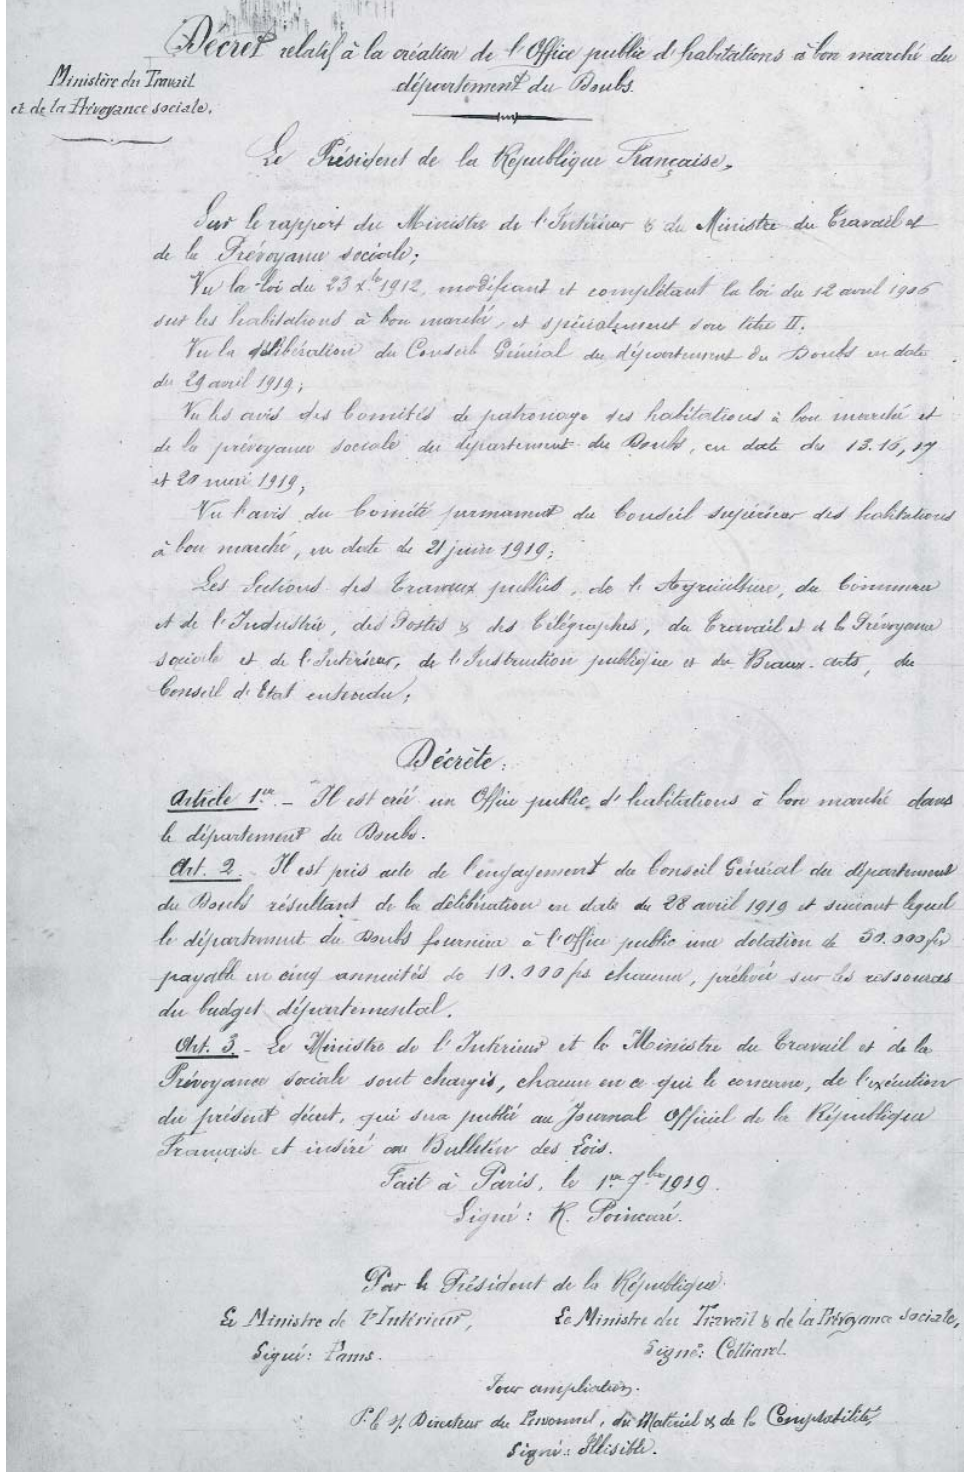 Décret relatif à la création de l'Office public d'habitations à bon marché du
département du Doubs.
Ministère du Travail
et de la Prévoyance sociale.
Le Président de la République Française,
Sur le rapport du Ministre de l'Intérieur & du Ministre du Travail et
de la Prévoyance sociale;
Vu la loi du 23 Xbre 1912, modifiant et complétant la loi du 12 avril 1906
sur les habitations à bon marché, et spécialement son titre II.
Vu la délibération du Conseil Général du département du Doubs en date
du 29 avril 1919;
Vu les avis des Comités de patronage des habitations à bon marché et
de la prévoyance sociale du département du Doubs, en date du 13.16,17
et 20 mai 1919;
Vu l'avis du Comité permanent du Conseil supérieur des habitations
à bon marché, en date du 21 juin 1919;
Les Sections des Travaux publics, de l'Agriculture, du Commerce
et de l'Industrie, des Postes & des Télégraphes, du Travail et de la Prévoyance
sociale et de l'Intérieur, de l'Instruction publique et des Beaux-arts, du
Conseil d'Etat entendu;
Décrète:
Article 1er. - Il est créé un Office public d'habitations à bon marché dans
le département du Doubs.
Art. 2. Il est pris acte de l'engagement du Conseil Général du département
du Doubs résultant de la délibération en date du 28 avril 1919 et suivant lequel
le département du Doubs fournira à l'Office public une dotation de 50.000 frs
payable en cinq annuités de 10.000 frs chacune, prélevée sur les ressources
du budget départemental.
Art. 3. - Le Ministre de l'Intérieur et le Ministre du Travail et de la
Prévoyance sociale sont chargés, chacun en ce qui le concerne, de l'exécution
du présent décret, qui sera publié au Journal Officiel de la République
Française et inséré au Bulletin des Lois.
Fait à Paris, le 1er 7bre 1919.
Signé: R. Poincaré.
Par le Président de la République.
Le Ministre de l'Intérieur,
Signé: Pams.
Le Ministre du Travail & de la Prévoyance sociale,
Signé: Colliard.
Pour ampliation.
Directeur du Personnel, du Matériel & de la Comptabilité
Signé: Illisible.